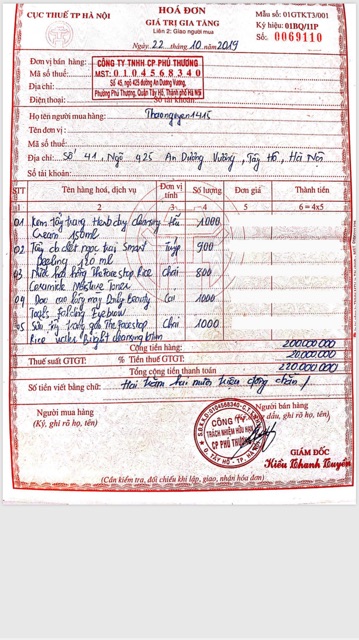 CỤC THUẾ TP HÀ NỘI
HOÁ ĐƠN
GIÁ TRỊ GIA TĂNG
Liên 2: Giao người mua
Mẫu số: 01GTKT3/001
Ký hiệu: 01BQ/11P
Số: 0069110
Ngày 22 tháng 10 năm 2019
Đơn vị bán hàng:
Mã số thuế:
Địa chỉ:
Điện thoại: Số tài khoản:
CÔNG TY-TNHH-CP-PHÚ THƯƠNG
MST: 0 1 0 4 5 6 8 3 4 0
Số 45, ngõ 425 đường An Dương Vương,
Phường Phú Thượng, Quận Tây Hồ, Thành phố Hà Nội
Họ tên người mua hàng Thaonguyen1415
Tên đơn vị:
Mã số thuế:
Địa chỉ: Số 41, Ngõ 425 An Dương Vương, Tây Hồ, Hà Nội
Số tài khoản:
STT Tên hàng hoá, dịch vụ Đơn vị tính Số lượng Đơn giá Thành tiền
1 2 3 4 5 6 = 4x5
01 Kem tẩy trang Herb day cleansing Cream 150ml 1000
02 Tẩy da chết ngọc trai Smart Peeling 120 ml Tuýp 900
03 Nước hoa hồng The Face shop Rice Ceramide Moisture Toner Chai 800
04 Dao cạo lông mày Daily Beauty Tools Folding Eyebrow Cái 1000
05 Sữa tẩy trang gạo The Face shop Rice water Bright cleansing lotion Chai 1000
Cộng tiền hàng: 200.000.000
Thuế suất GTGT: % Tiền thuế GTGT: 20.000.000
Tổng cộng tiền thanh toán 220.000.000
Số tiền viết bằng chữ: Hai trăm hai mươi triệu đồng chẵn /
Người mua hàng
(Ký, ghi rõ họ, tên)
Người bán hàng
dấu, ghi rõ họ, tên)
CÔNG TY
TRÁCH NHIỆM HỮU HẠN
CP PHÚ THƯƠNG
Q. TÂY HỒ - TP. HÀ NỘI
GIÁM ĐỐC
Kiều Khanh Huyền
(Cần kiểm tra, đối chiếu khi lập, giao, nhận hóa đơn)